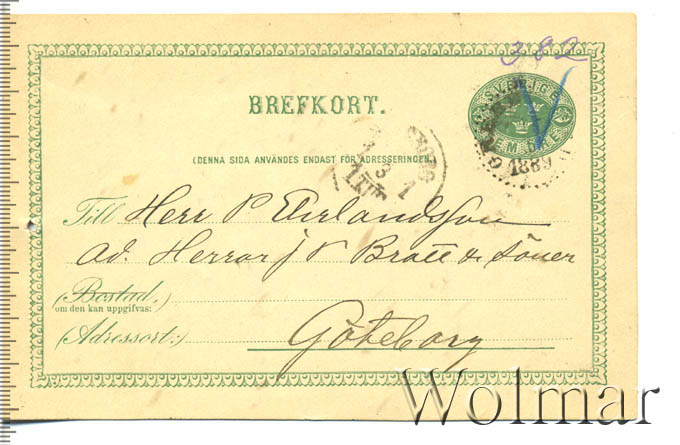 382
SVERIGE
FEM ÖRE
BREFKORT.
1889
(DENNA SIDA ANVÄNDES ENDAST FÖR ADRESSERINGEN.)
Till Herr P Ehrlandsson
Ad. Herrar J P Bratt & Söner
(Bostad,)
om den kan uppgifvas:
(Adressort:) Göteborg
Wolmar